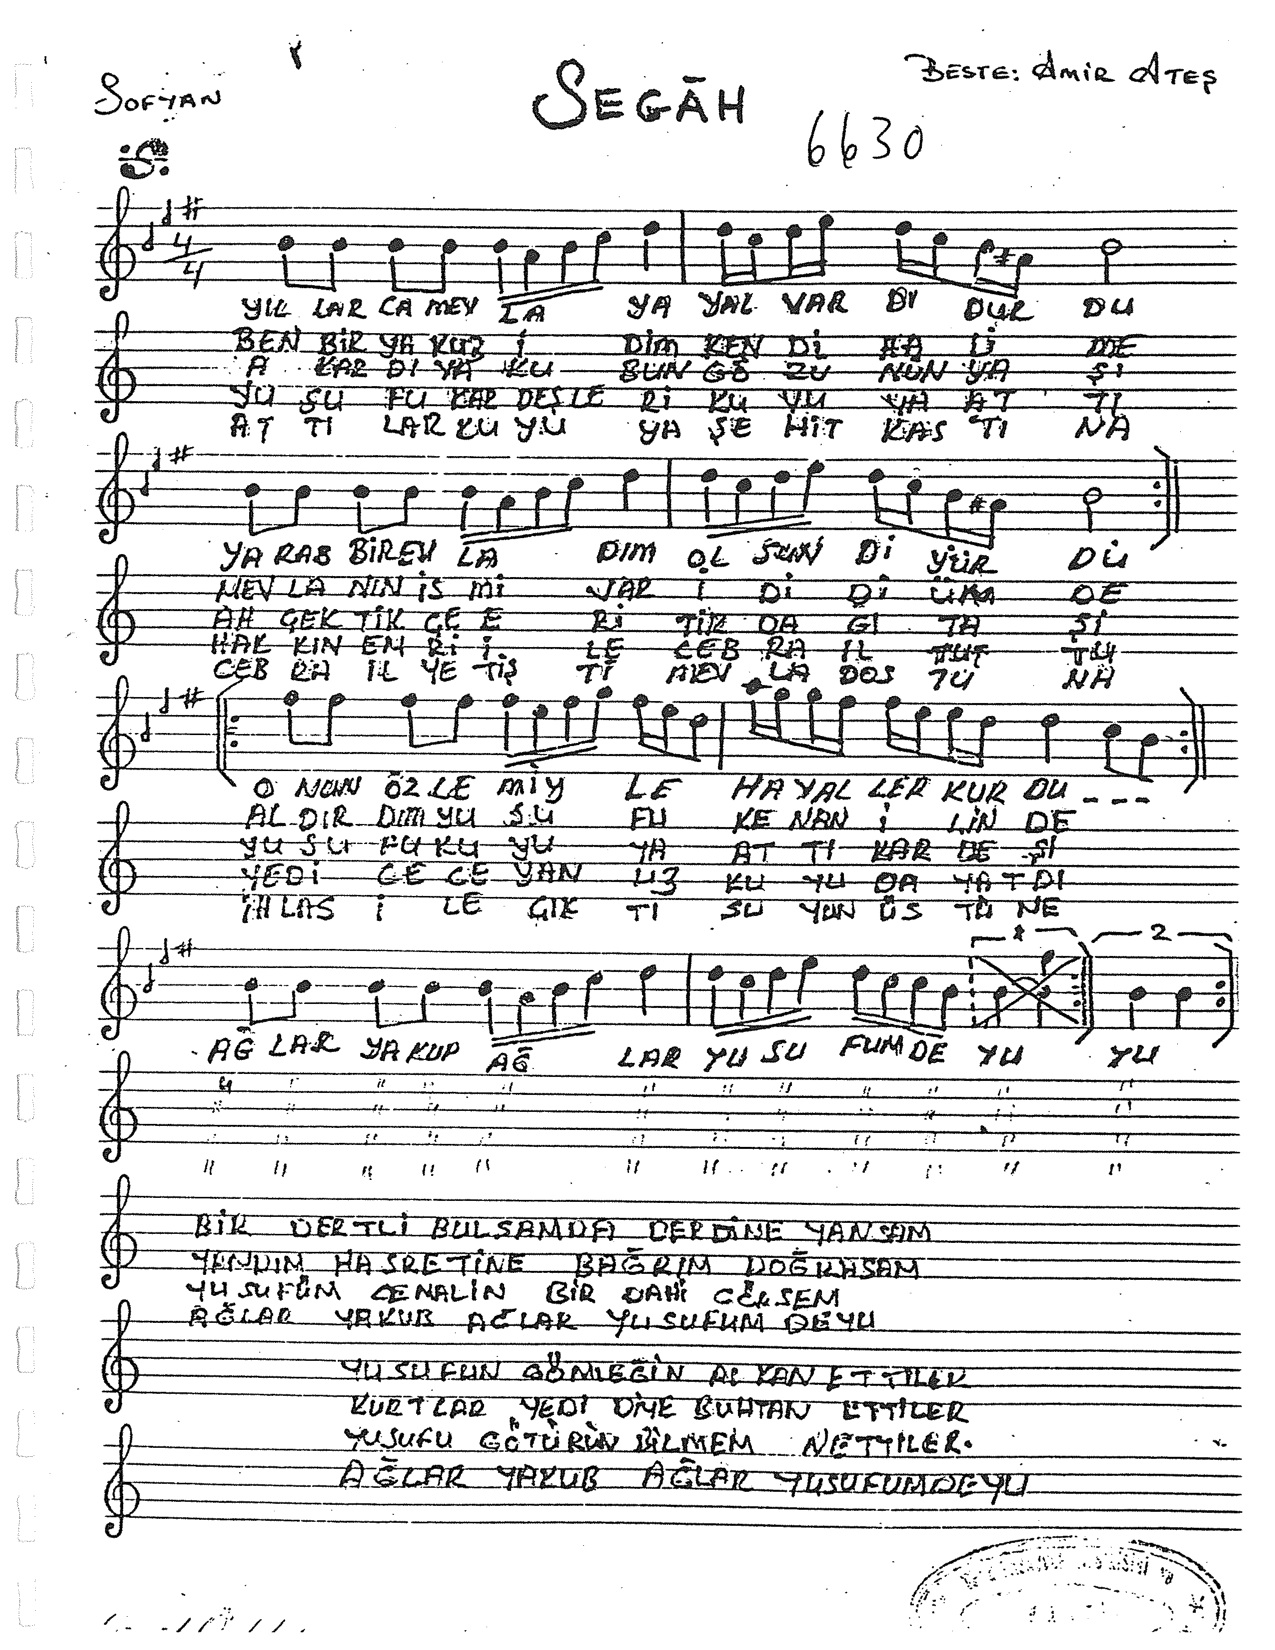 SOFYAN
SEGÂH
BESTE: AMİR ATEŞ
6630
4/4
YIL LAR CA MEV LA YA YAL VAR DI DUR DU
BEN BİR YA KUZ İ DİM KEN Dİ HA Lİ ME
A KAR DI YA KU BUN GÖ ZÜ NÜN YA ŞI
YU SU FU KAR DEŞ LE Rİ KU YU YA AT TI
AT TI LAR KU YU YA ŞE HİT KAS TI NA
YA RAB BİR EV LA DIM OL SUN Dİ YÜR DÜ
MEV LA NIN İS Mİ VAR İ Dİ Dİ DE
AH ÇEK TİK ÇE E Rİ TİR DA GI TA ŞI
HAK KIN EM Rİ İ LE CEB RA İL TUT TU
CEB RA İL YE TİŞ Tİ MEV LA DOS TU NA
O NUN ÖZ LE MİY LE HA YAL LER KUR DU _ _ _
AL DIR DIM YU SU FU KE NAN İ LİN DE
YU SU FU KU YU YA AT TI KAR DE Şİ
YEDİ GE CE YAN UZ KU YU DA YAT DI
İH LAS İ LE ÇIK TI SU YUN ÜS TÜ NE
1 2
AĞ LAR YA KUP AĞ LAR YU SU FUM DE YU YU
BİR DERTLİ BULSAMDA DERDİNE YANSAM
YANDIM HASRETİNE BAĞRIM DOĞRASAM
YUSUFÜM CEMALİN BİR DAHİ GÖRSEM
AĞLAR YAKUB AĞLAR YUSUFUM DEYU
YUSUFUN GÖMLEĞİN AL KAN ETTİLER
KURTLAR YEDİ DİYE BUHTAN ETTİLER
YUSUFU GÖTÜRÜN BİLMEM NETTİLER.
AĞLAR YAKUB AĞLAR YUSUFUMDEYU